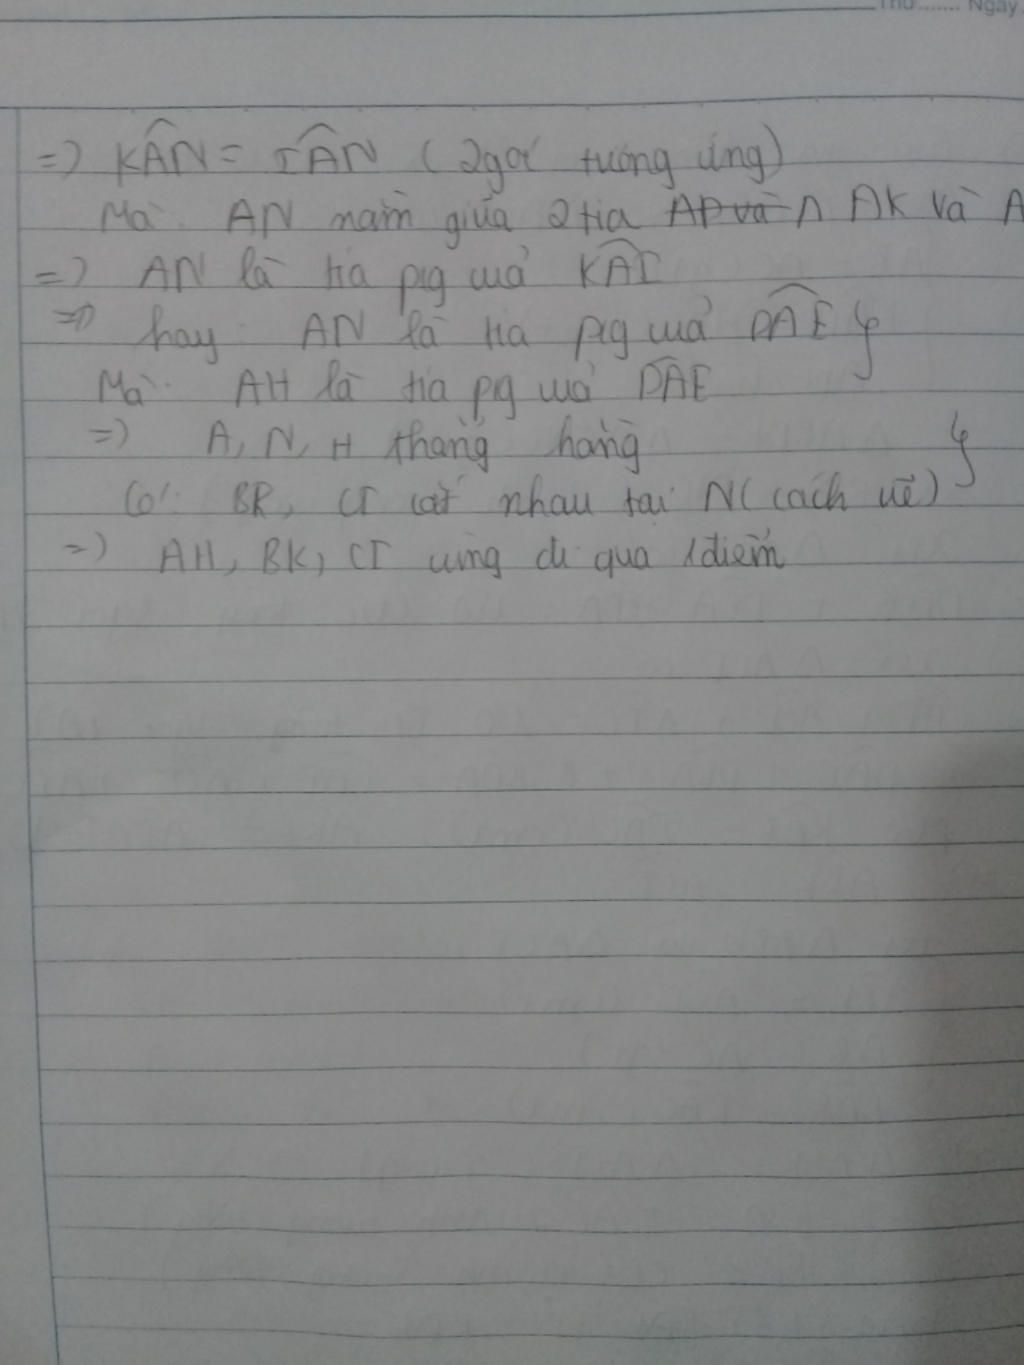 Thứ....... Ngày
=) KÂN = IÂN (2góc tương ứng)
Mà: AN nằm giữa 2 tia AP và A AK và A
=) AN là tia pg của KAI
=) hay: AN là tia pg của DAE
Mà: AH là tia pg của DAE
=) A, N, H thẳng hàng
Có: BK, CI cắt nhau tại N (cách vẽ)
=) AH, BK, CI cùng đi qua 1 điểm